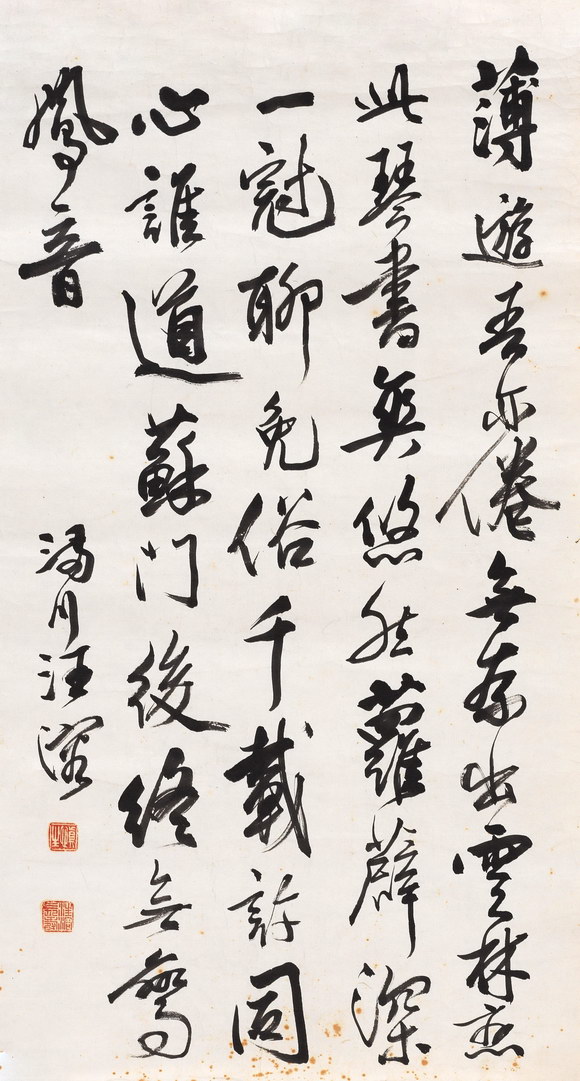 薄遊吾亦倦無奈出雲林忝
此琴書奠悠然蘿薜深
一冠聊免俗千載許同
心誰道蘇門後終無鸞
鳳音
汪溶